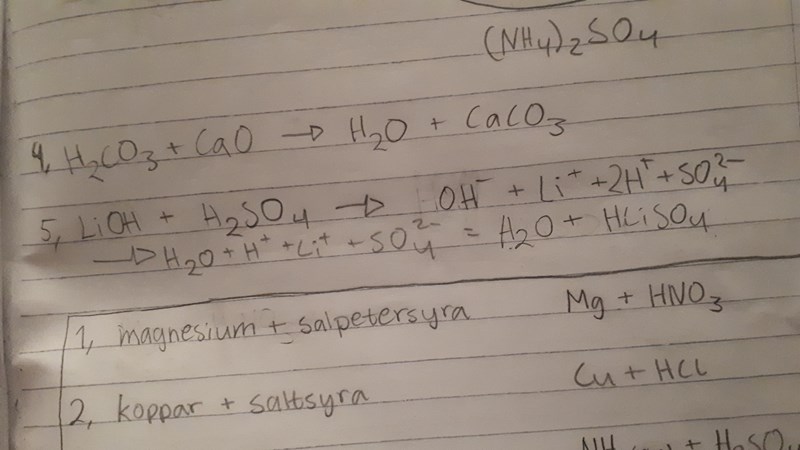 (NH₄)₂SO₄
4, H₂CO₃ + CaO → H₂O + CaCO₃
5, LiOH + H₂SO₄ → OH⁻ + Li⁺ + 2H⁺ + SO₄²⁻
→ H₂O + H⁺ + Li⁺ + SO₄²⁻ = H₂O + HLiSO₄
1, magnesium + salpetersyra Mg + HNO₃
2, koppar + saltsyra Cu + HCl